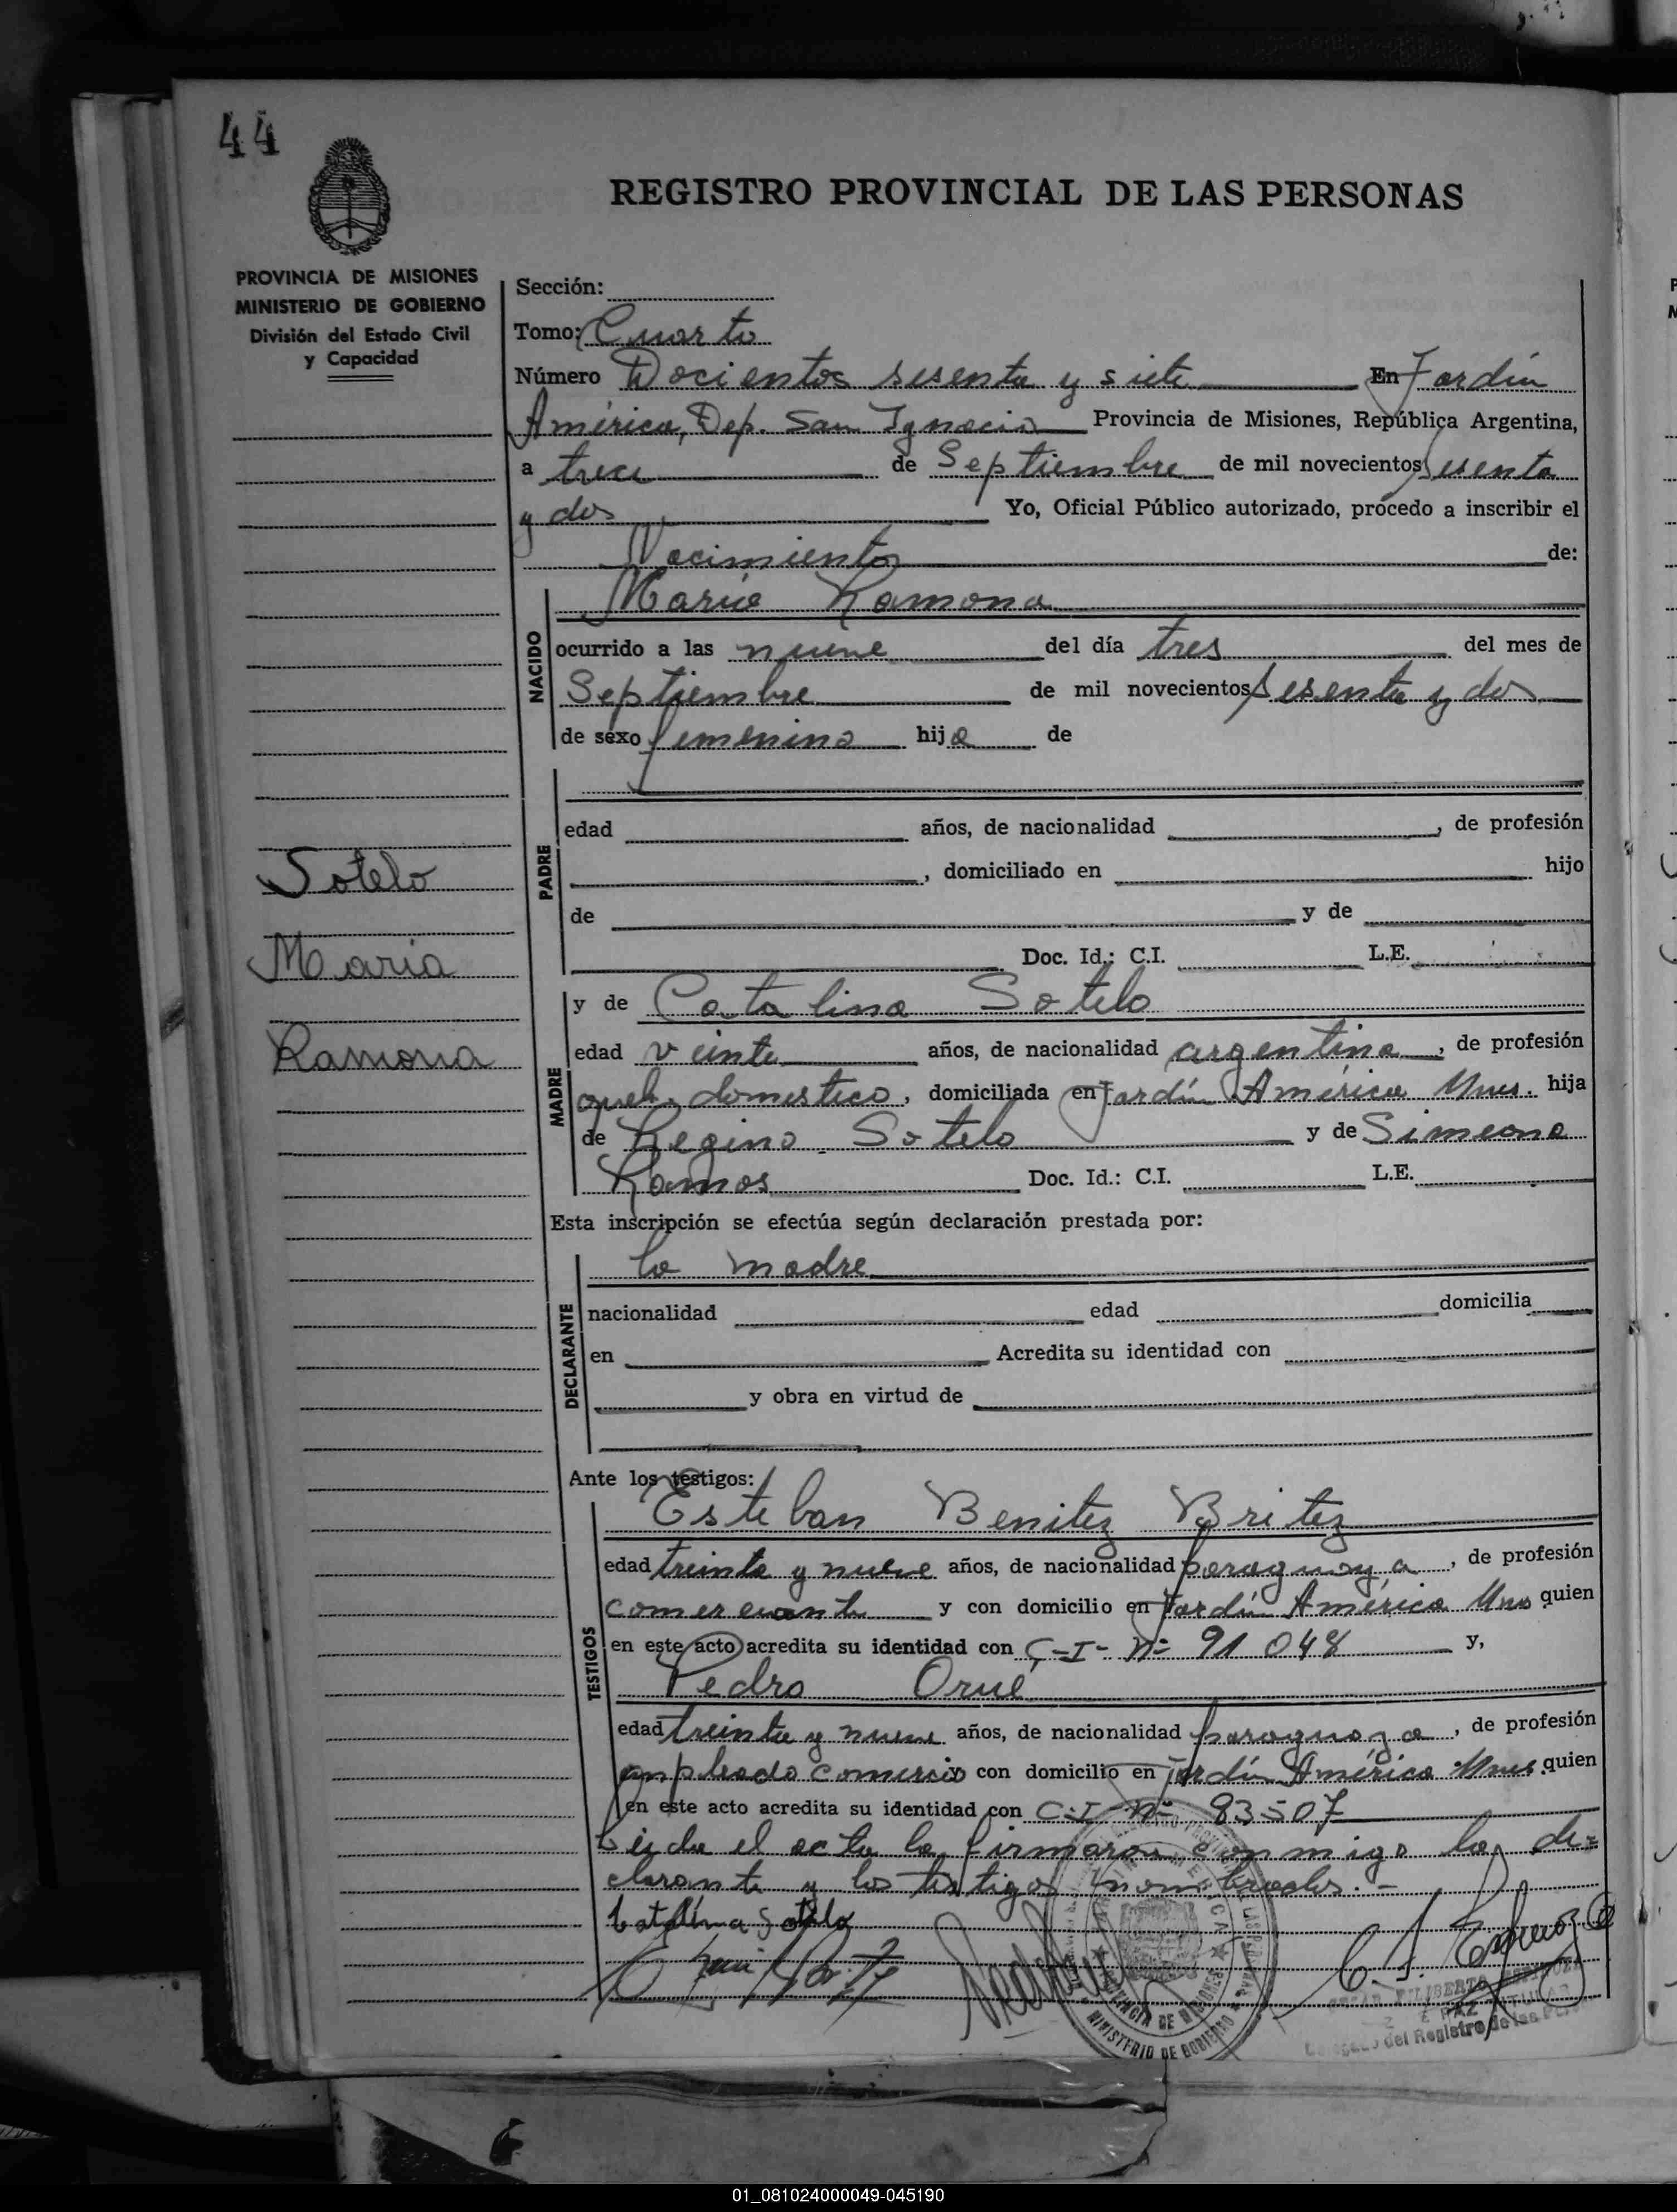 44
REGISTRO PROVINCIAL DE LAS PERSONAS
PROVINCIA DE MISIONES
MINISTERIO DE GOBIERNO
División del Estado Civil
y Capacidad
Sección:
Tomo: Cuarto
Número Docientos sesenta y siete En Jardín
América, Dep. San Ignacio Provincia de Misiones, República Argentina,
a trece de Septiembre de mil novecientos sesenta
y dos Yo, Oficial Público autorizado, procedo a inscribir el
Nacimiento de:
Maria Ramona
NACIDO
ocurrido a las nueve del día tres del mes de
Septiembre de mil novecientos sesenta y dos
de sexo femenino hija de
PADRE
edad años, de nacionalidad , de profesión
, domiciliado en hijo
de y de
Doc. Id.: C.I. L.E.
Sotelo
Maria
Ramona
MADRE
y de Catalina Sotelo
edad veinte años, de nacionalidad argentina, de profesión
domestico, domiciliada en Jardín América Mnes. hija
de Regino Sotelo y de Simeona
Ramos Doc. Id.: C.I. L.E.
Esta inscripción se efectúa según declaración prestada por:
DECLARANTE
la madre
nacionalidad edad domicilia
en Acredita su identidad con
y obra en virtud de
Ante los testigos:
TESTIGOS
Esteban Benitez Britez
edad treinta y nueve años, de nacionalidad paraguaya, de profesión
comerciante y con domicilio en Jardín América Mnes quien
en este acto acredita su identidad con C-I- Nº 91 048 y,
Pedro Orué
edad treinta y nueve años, de nacionalidad paraguaya, de profesión
empleado comercio y con domicilio en Jardín América Mnes. quien
en este acto acredita su identidad con C-I- Nº 83507
Leida el acta la firmaron conmigo la de=
clarante y los testigos nombrados.-
Catalina Sotelo
PROVINCIA DE MISIONES
MINISTERIO DE GOBIERNO
del Registro de las
01_081024000049-045190